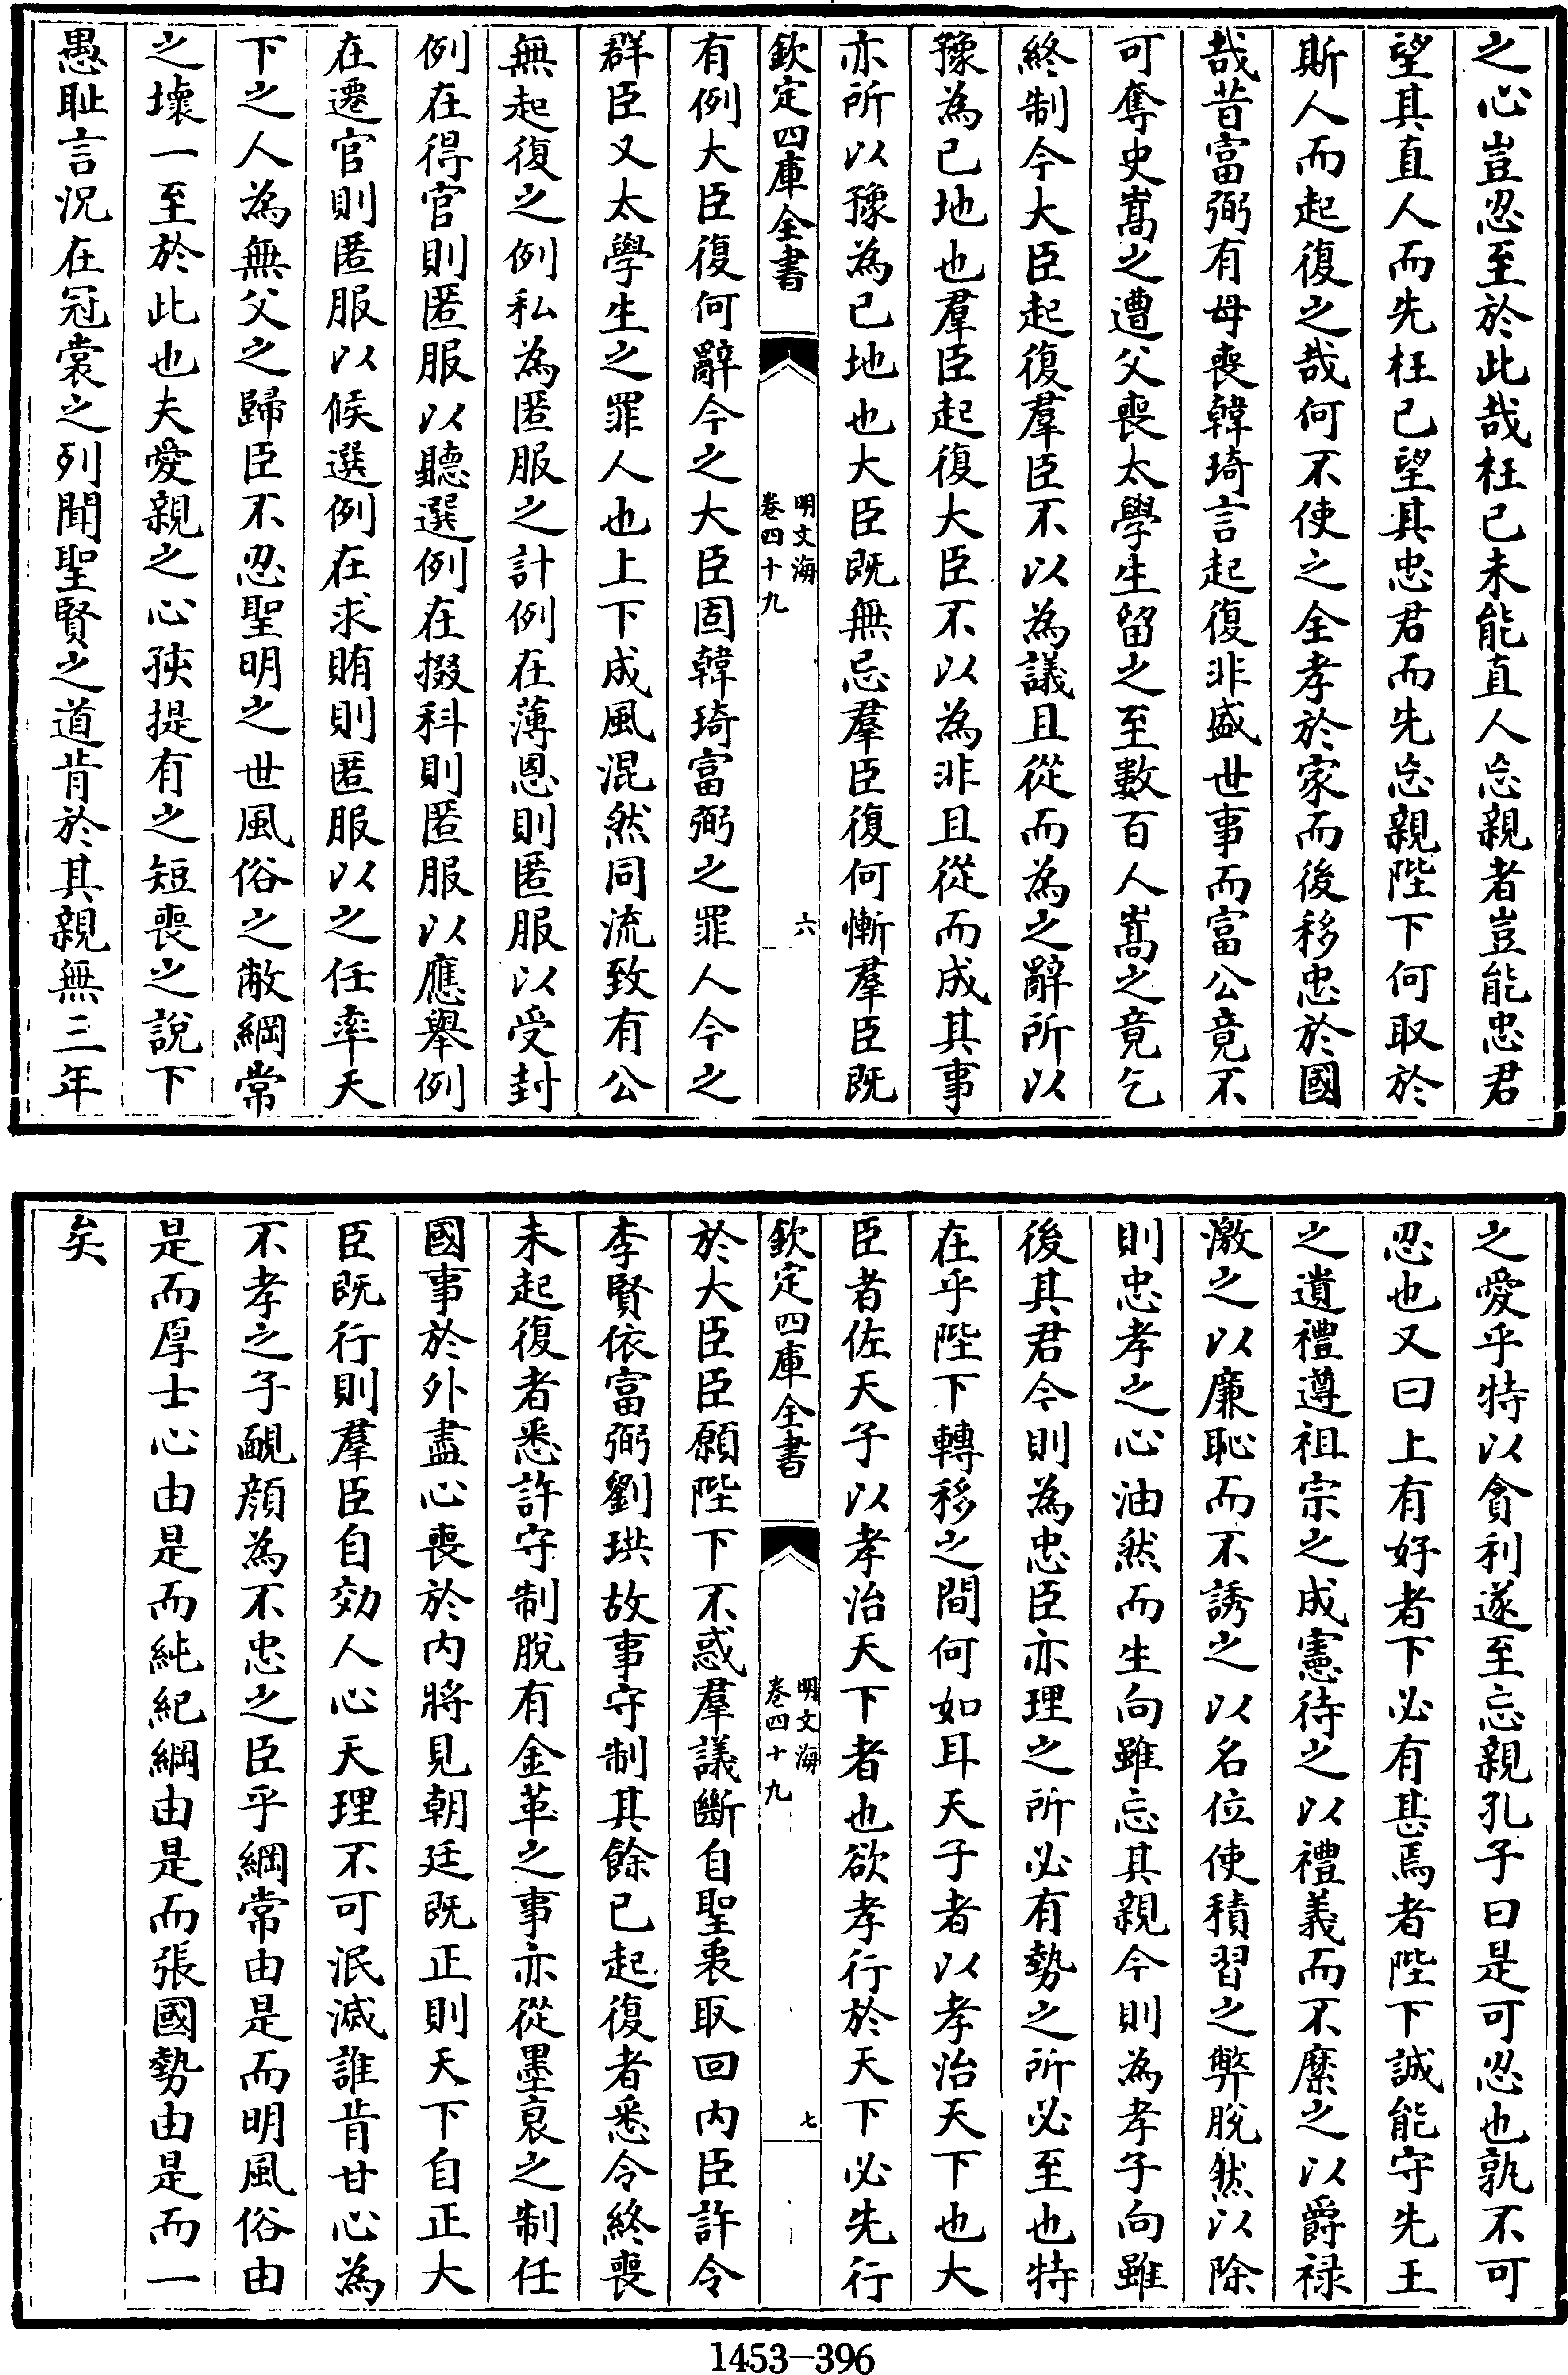 之心豈忍至於此哉枉已未能直人忘親者豈能忠君
望其直人而先枉已望其忠君而先忘親陛下何取於
斯人而起復之哉何不使之全孝於家而後移忠於國
哉昔富弼有母喪韓琦言起復非盛世事而富公竟不
可奪史嵩之遭父喪太學生留之至數百人嵩之竟乞
終制今大臣起復羣臣不以為議且從而為之辭所以
豫為已地也羣臣起復大臣不以為非且從而成其事
亦所以豫為已地也大臣既無忌羣臣復何慚羣臣既
欽定四庫全書
明文海
卷四十九
六
有例大臣復何辭今之大臣固韓琦富弼之罪人今之
群臣又太學生之罪人也上下成風混然同流致有公
無起復之例私為匿服之計例在薄恩則匿服以受封
例在得官則匿服以聽選例在掇科則匿服以應舉例
在遷官則匿服以候選例在求賄則匿服以之任率天
下之人為無父之歸臣不忍聖明之世風俗之敝綱常
之壞一至於此也夫愛親之心孩提有之短喪之說下
愚耻言況在冠裳之列聞聖賢之道肯於其親無三年
之愛乎特以貪利遂至忘親孔子曰是可忍也孰不可
忍也又曰上有好者下必有甚焉者陛下誠能守先王
之遺禮遵祖宗之成憲待之以禮義而不縻之以爵禄
激之以廉恥而不誘之以名位使積習之弊脫然以除
則忠孝之心油然而生向雖忘其親今則為孝子向雖
後其君今則為忠臣亦理之所必有勢之所必至也特
在乎陛下轉移之間何如耳天子者以孝治天下也大
臣者佐天子以孝治天下者也欲孝行於天下必先行
欽定四庫全書
明文海
卷四十九
七
於大臣臣願陛下不惑羣議斷自聖衷取回内臣許令
李賢依富弼劉珙故事守制其餘已起復者悉令終喪
未起復者悉許守制脫有金革之事亦從墨衰之制任
國事於外盡心喪於内將見朝廷既正則天下自正大
臣既行則羣臣自効人心天理不可泯滅誰肯甘心為
不孝之子靦顔為不忠之臣乎綱常由是而明風俗由
是而厚士心由是而純紀綱由是而張國勢由是而一
矣
1453-396